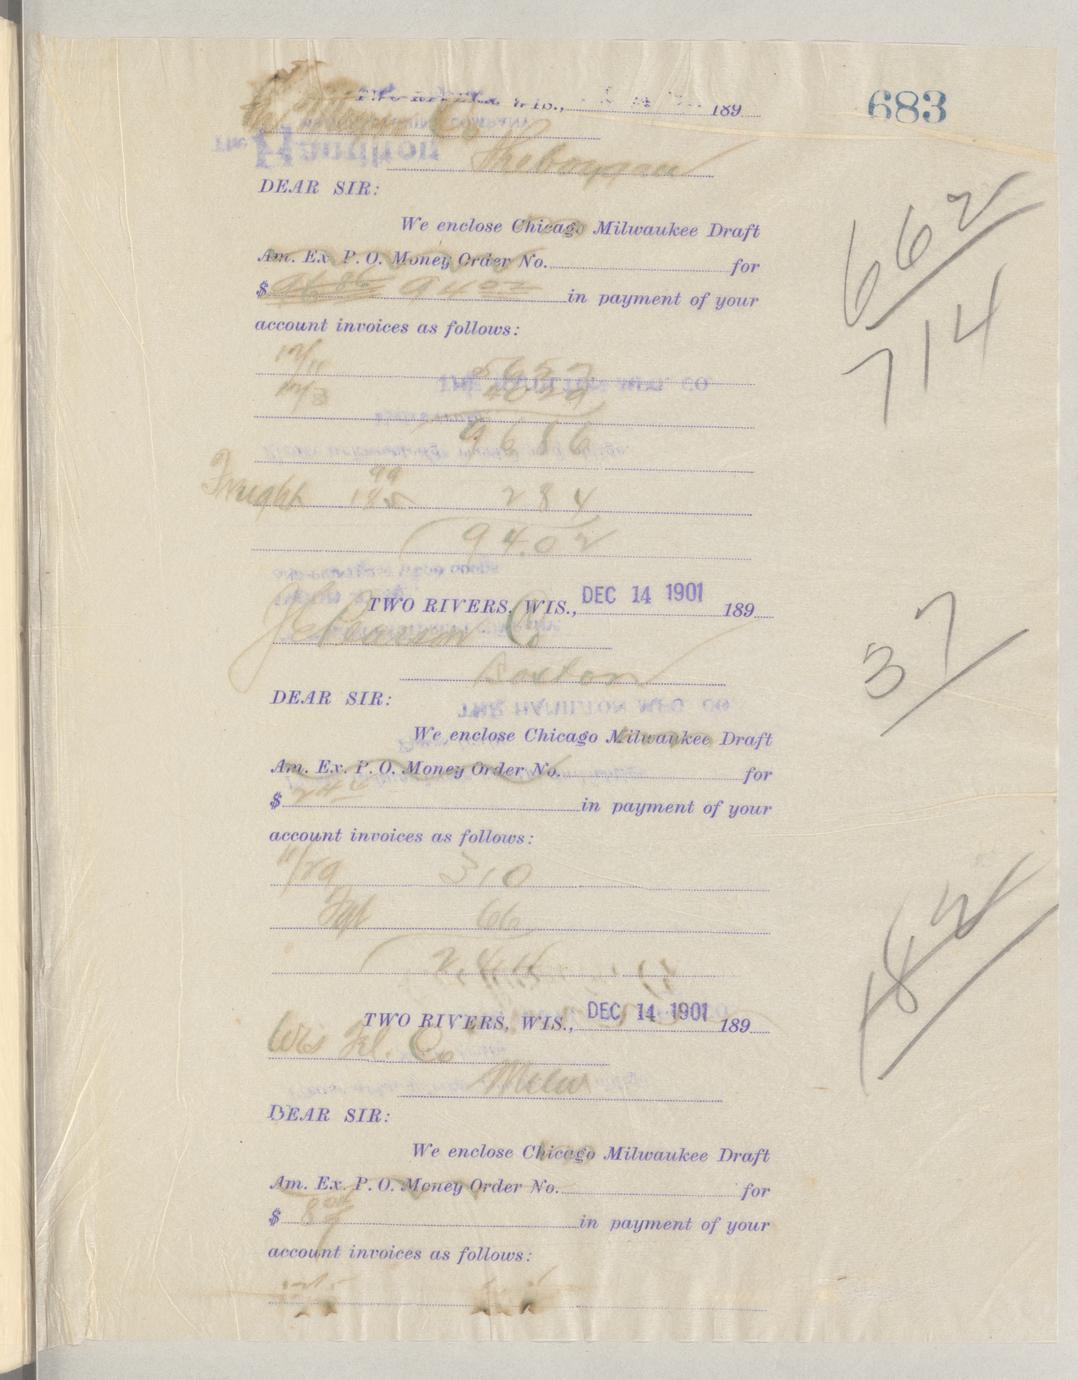 683
TWO RIVERS, WIS., 189
Co
The Hamilton
Sheboygan
DEAR SIR:
We enclose Chicago Milwaukee Draft
Am. Ex. P. O. Money Order No. for
$ 96 86 94 02 in payment of your
account invoices as follows:
12/11 56 57
12/3 40 29
96 86
Freight 99
185 2 84
94.02
662
714
TWO RIVERS, WIS., DEC 14 1901 189
Co
Boston
DEAR SIR:
We enclose Chicago Milwaukee Draft
Am. Ex. P. O. Money Order No. for
$ 2 44 in payment of your
account invoices as follows:
11/29 3 10
Fgt 66
2.44
37
TWO RIVERS, WIS., DEC 14 1901 189
Wis Tel. Co
Milw
DEAR SIR:
We enclose Chicago Milwaukee Draft
Am. Ex. P. O. Money Order No. for
$ 8 in payment of your
account invoices as follows:
182